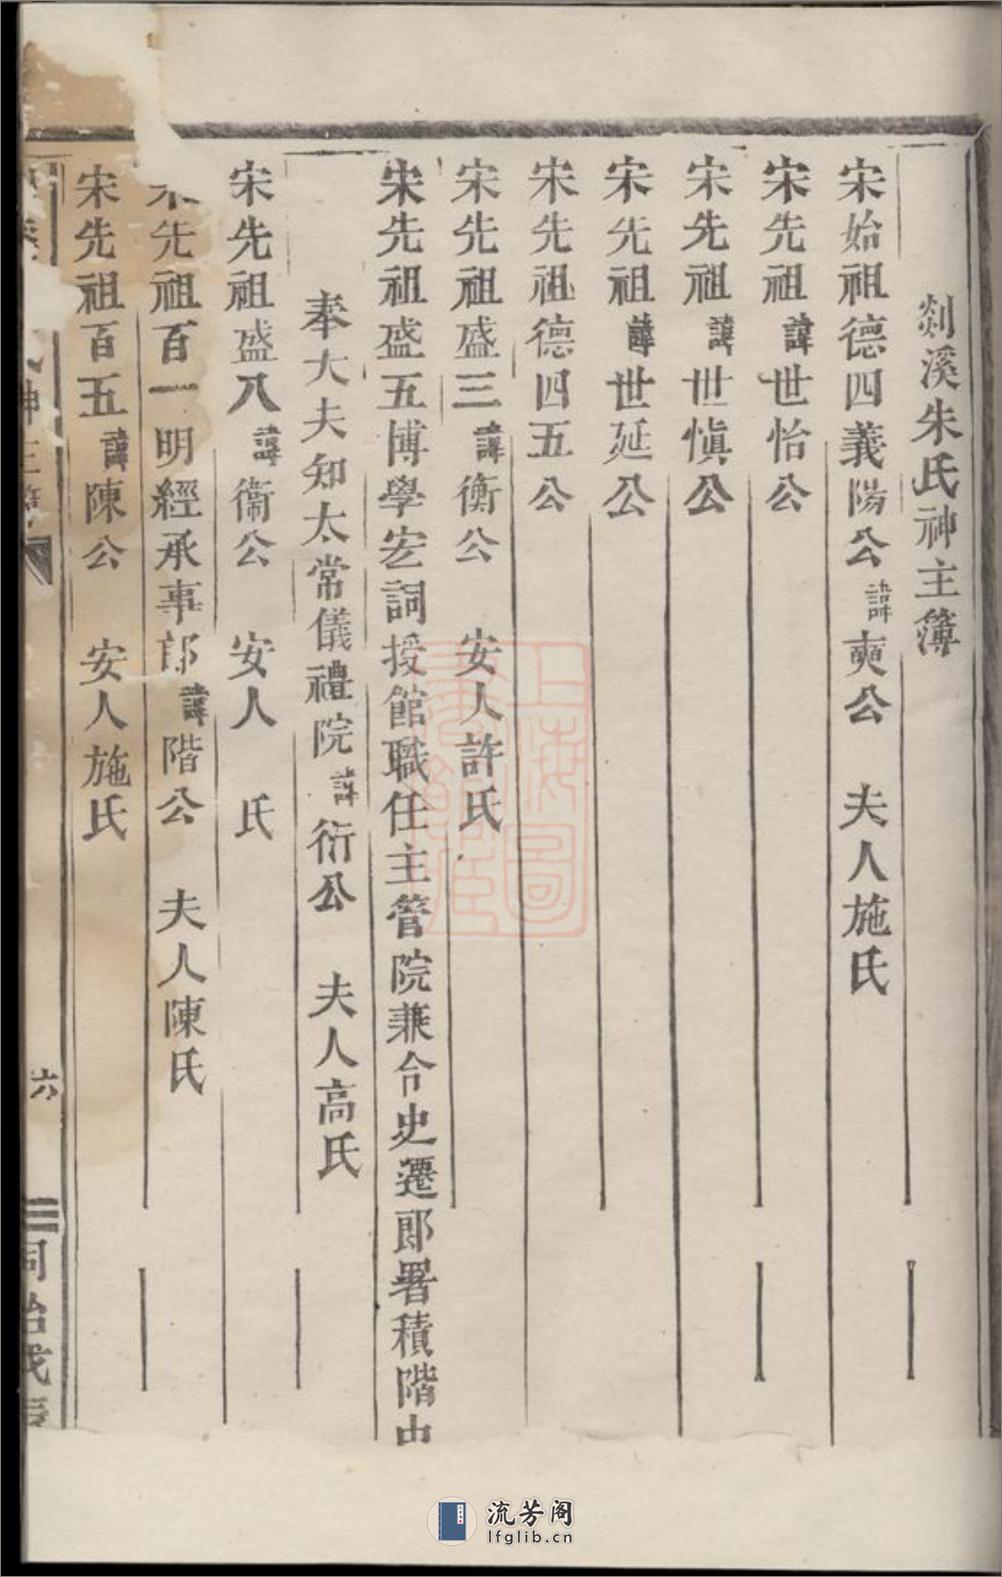 剡溪朱氏神主簿
宋始祖德四義陽公諱奭公　夫人施氏
宋先祖諱世怡公
宋先祖諱世愼公
宋先祖諱世延公
宋先祖德四五公
宋先祖盛三諱衡公　安人許氏
宋先祖盛五博學宏詞授館職任主管院兼令史遷郎署積階中
奉大夫知太常儀禮院諱衍公　夫人高氏
宋先祖盛八諱衞公　安人　氏
宋先祖百一明經承事郎諱階公　夫人陳氏
宋先祖百五諱陳公　安人施氏
神主簿
六
同治戊辰
上海圖
流芳阁
lfglib.cn